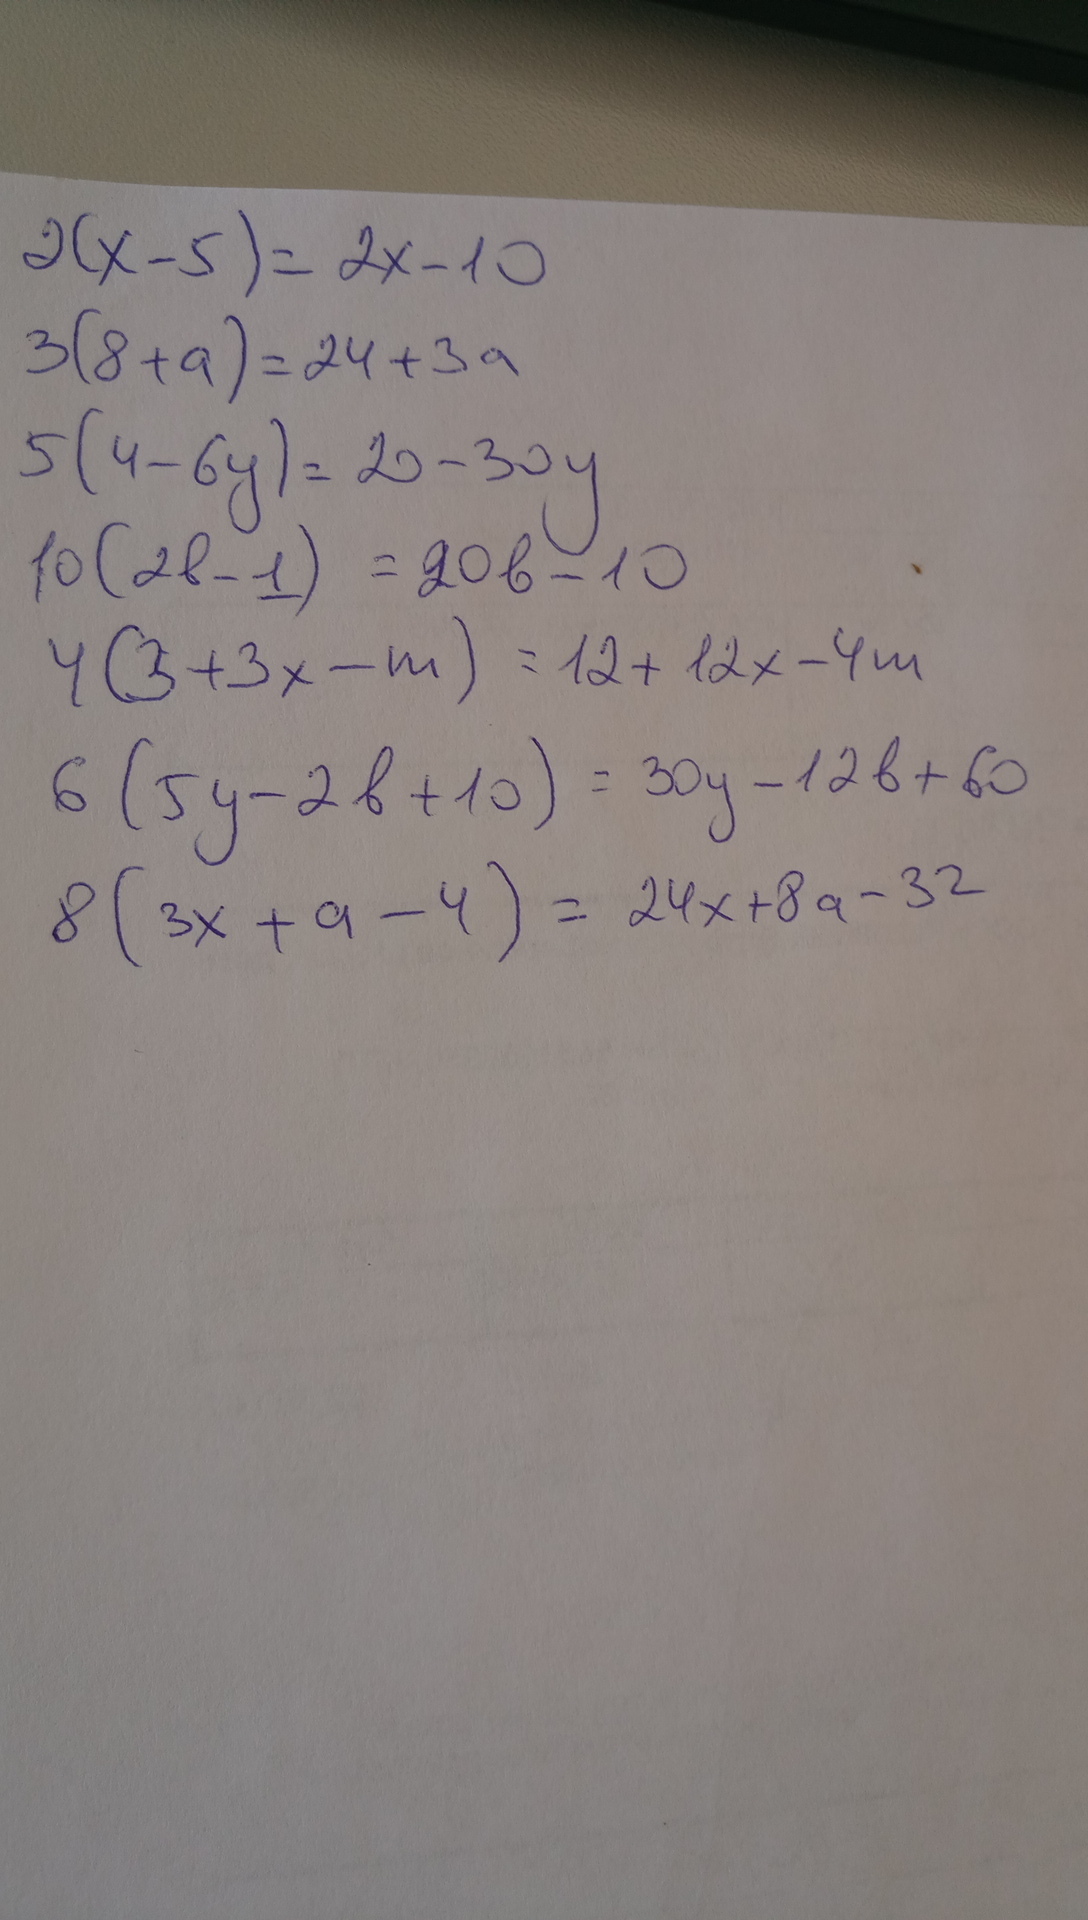 2(x-5)=2x-10
3(8+a)=24+3a
5(4-6y)=20-30y
10(2b-1)=20b-10
4(3+3x-m)=12+12x-4m
6(5y-2b+10)=30y-12b+60
8(3x+a-4)=24x+8a-32